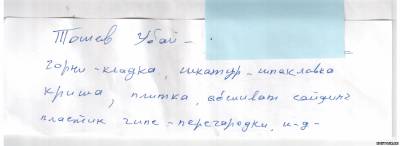 Тошев Убай -
горни - кладка, шкатур - шпакловка
криша, плитка, обшиват сайдинг
пластик гипс - перегородки, и-д-